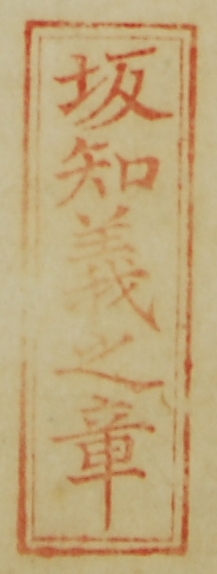 坂知義之章